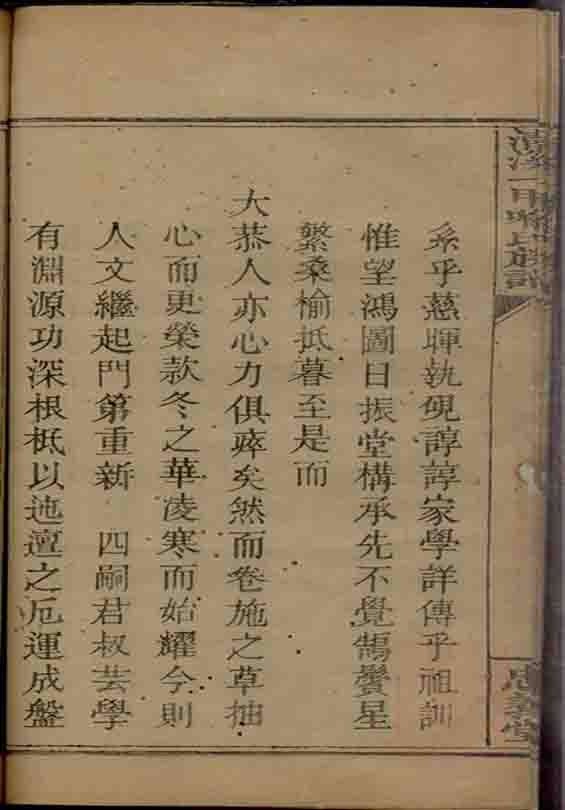 系乎慈暉執硯諄諄家學詳傳乎祖訓
惟望鴻圖日振堂構承先不覺鵠鬢星
繁桑榆抵暮至是而
大恭人亦心力俱瘁矣然而卷施之草抽
心而更榮款冬之華凌寒而始耀今則
人文繼起門第重新 四嗣君叔芸學
有淵源功深根柢以迍邅之厄運成盤